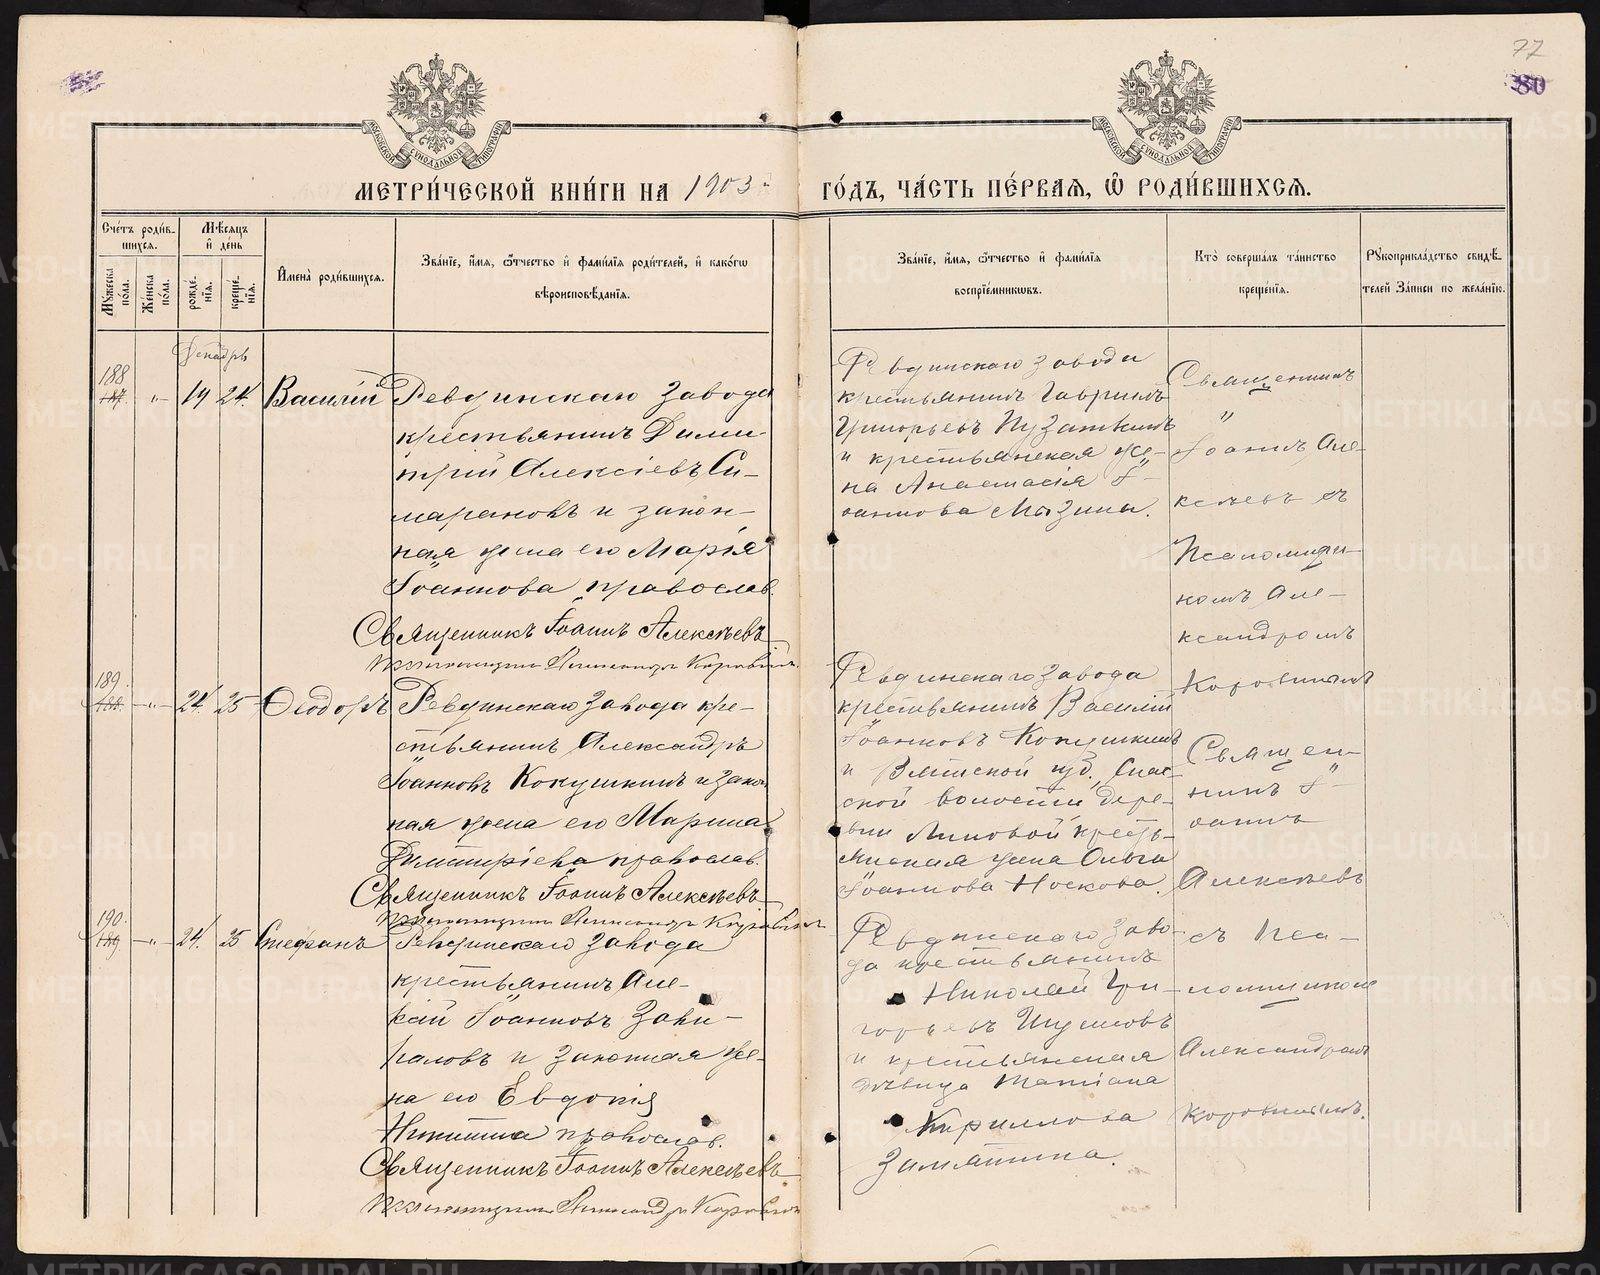 77
80
МОСКОВСКОЙ СѴНОДАЛЬНОЙ ТИПОГРАФІИ
МОСКОВСКОЙ СѴНОДАЛЬНОЙ ТИПОГРАФІИ
МЕТРИ́ЧЕСКОЙ КНИ́ГИ НА 1903
ГО́ДЪ, ЧА́СТЬ ПЕ́РВАЯ, Ѿ РОДИ́ВШИХСЯ.
Сче́тъ роди́в-
шихся.
Му́жеска пола.
Же́нска пола.
Мѣ́сяцъ
и́ де́нь
рожде́-
нія.
креще́-
нія.
И́мена̀ роди́вшихся.
Зва́ніе, и́мя, ѻ́тчество и́ фами́лія роди́телей, и́ како́гѡ
вѣроисповѣ́данія.
Зва́ніе, и́мя, ѻ́тчество и́ фами́лія
воспріе́мниковъ.
Кто̀ соверша́лъ та́инство
креще́нія.
Рꙋкоприкла́дство свидѣ́-
телей за́писи по жела́нію.
Декабрь
188
187
-"-
19
24.
Василій
Ревдинскаго завода
крестьянинъ Дими-
трій Алексіевъ Си-
марановъ и закон-
ная жена его Марія
Іоаннова православ.
Священникъ Іоаннъ Алексѣевъ
Псаломщикъ Александръ Коровинъ.
Ревдинскаго завода
крестьянинъ Гавріилъ
Григорьевъ Пузаткинъ
и крестьянская же-
на Анастасія І-
оаннова Мызины.
Священникъ
"
Іоаннъ Але-
ксѣевъ съ
Псаломщи-
комъ Але-
ксандромъ
Коровинымъ
189.
188.
-"-
24.
25
Ѳеодоръ
Ревдинскаго завода кре-
стьянинъ Александръ
Іоанновъ Кокушкинъ и закон-
ная жена его Марина
Димитріева православ.
Священникъ Іоаннъ Алексѣевъ
Псаломщикъ Александръ Коровинъ
Ревдинскаго завода
крестьянинъ Василій
Іоанновъ Кокушкинъ
и Вятской губ. Спас-
ской волости дере-
вни Липовой кресть-
янская жена Ольга
Іоаннова Носкова.
Священ-
никъ І-
оаннъ
Алексѣевъ
190.
189
-"-
24.
25
Стефанъ
Ревдинскаго завода
крестьянинъ Але-
ксѣй Іоанновъ Заки-
риловъ и законная же-
на его Евдокія
Никитина православ.
Священникъ Іоаннъ Алексѣевъ
Псаломщикъ Александръ Коровинъ
Ревдинскаго заво-
да крестьянинъ
Николай Гри-
горьевъ Шумковъ
и крестьянская
дѣвица Татіана
Кириллова
Замятина.
съ Пса-
ломщикомъ
Александромъ
Коровинымъ.
METRIKI.GASO-URAL.RU